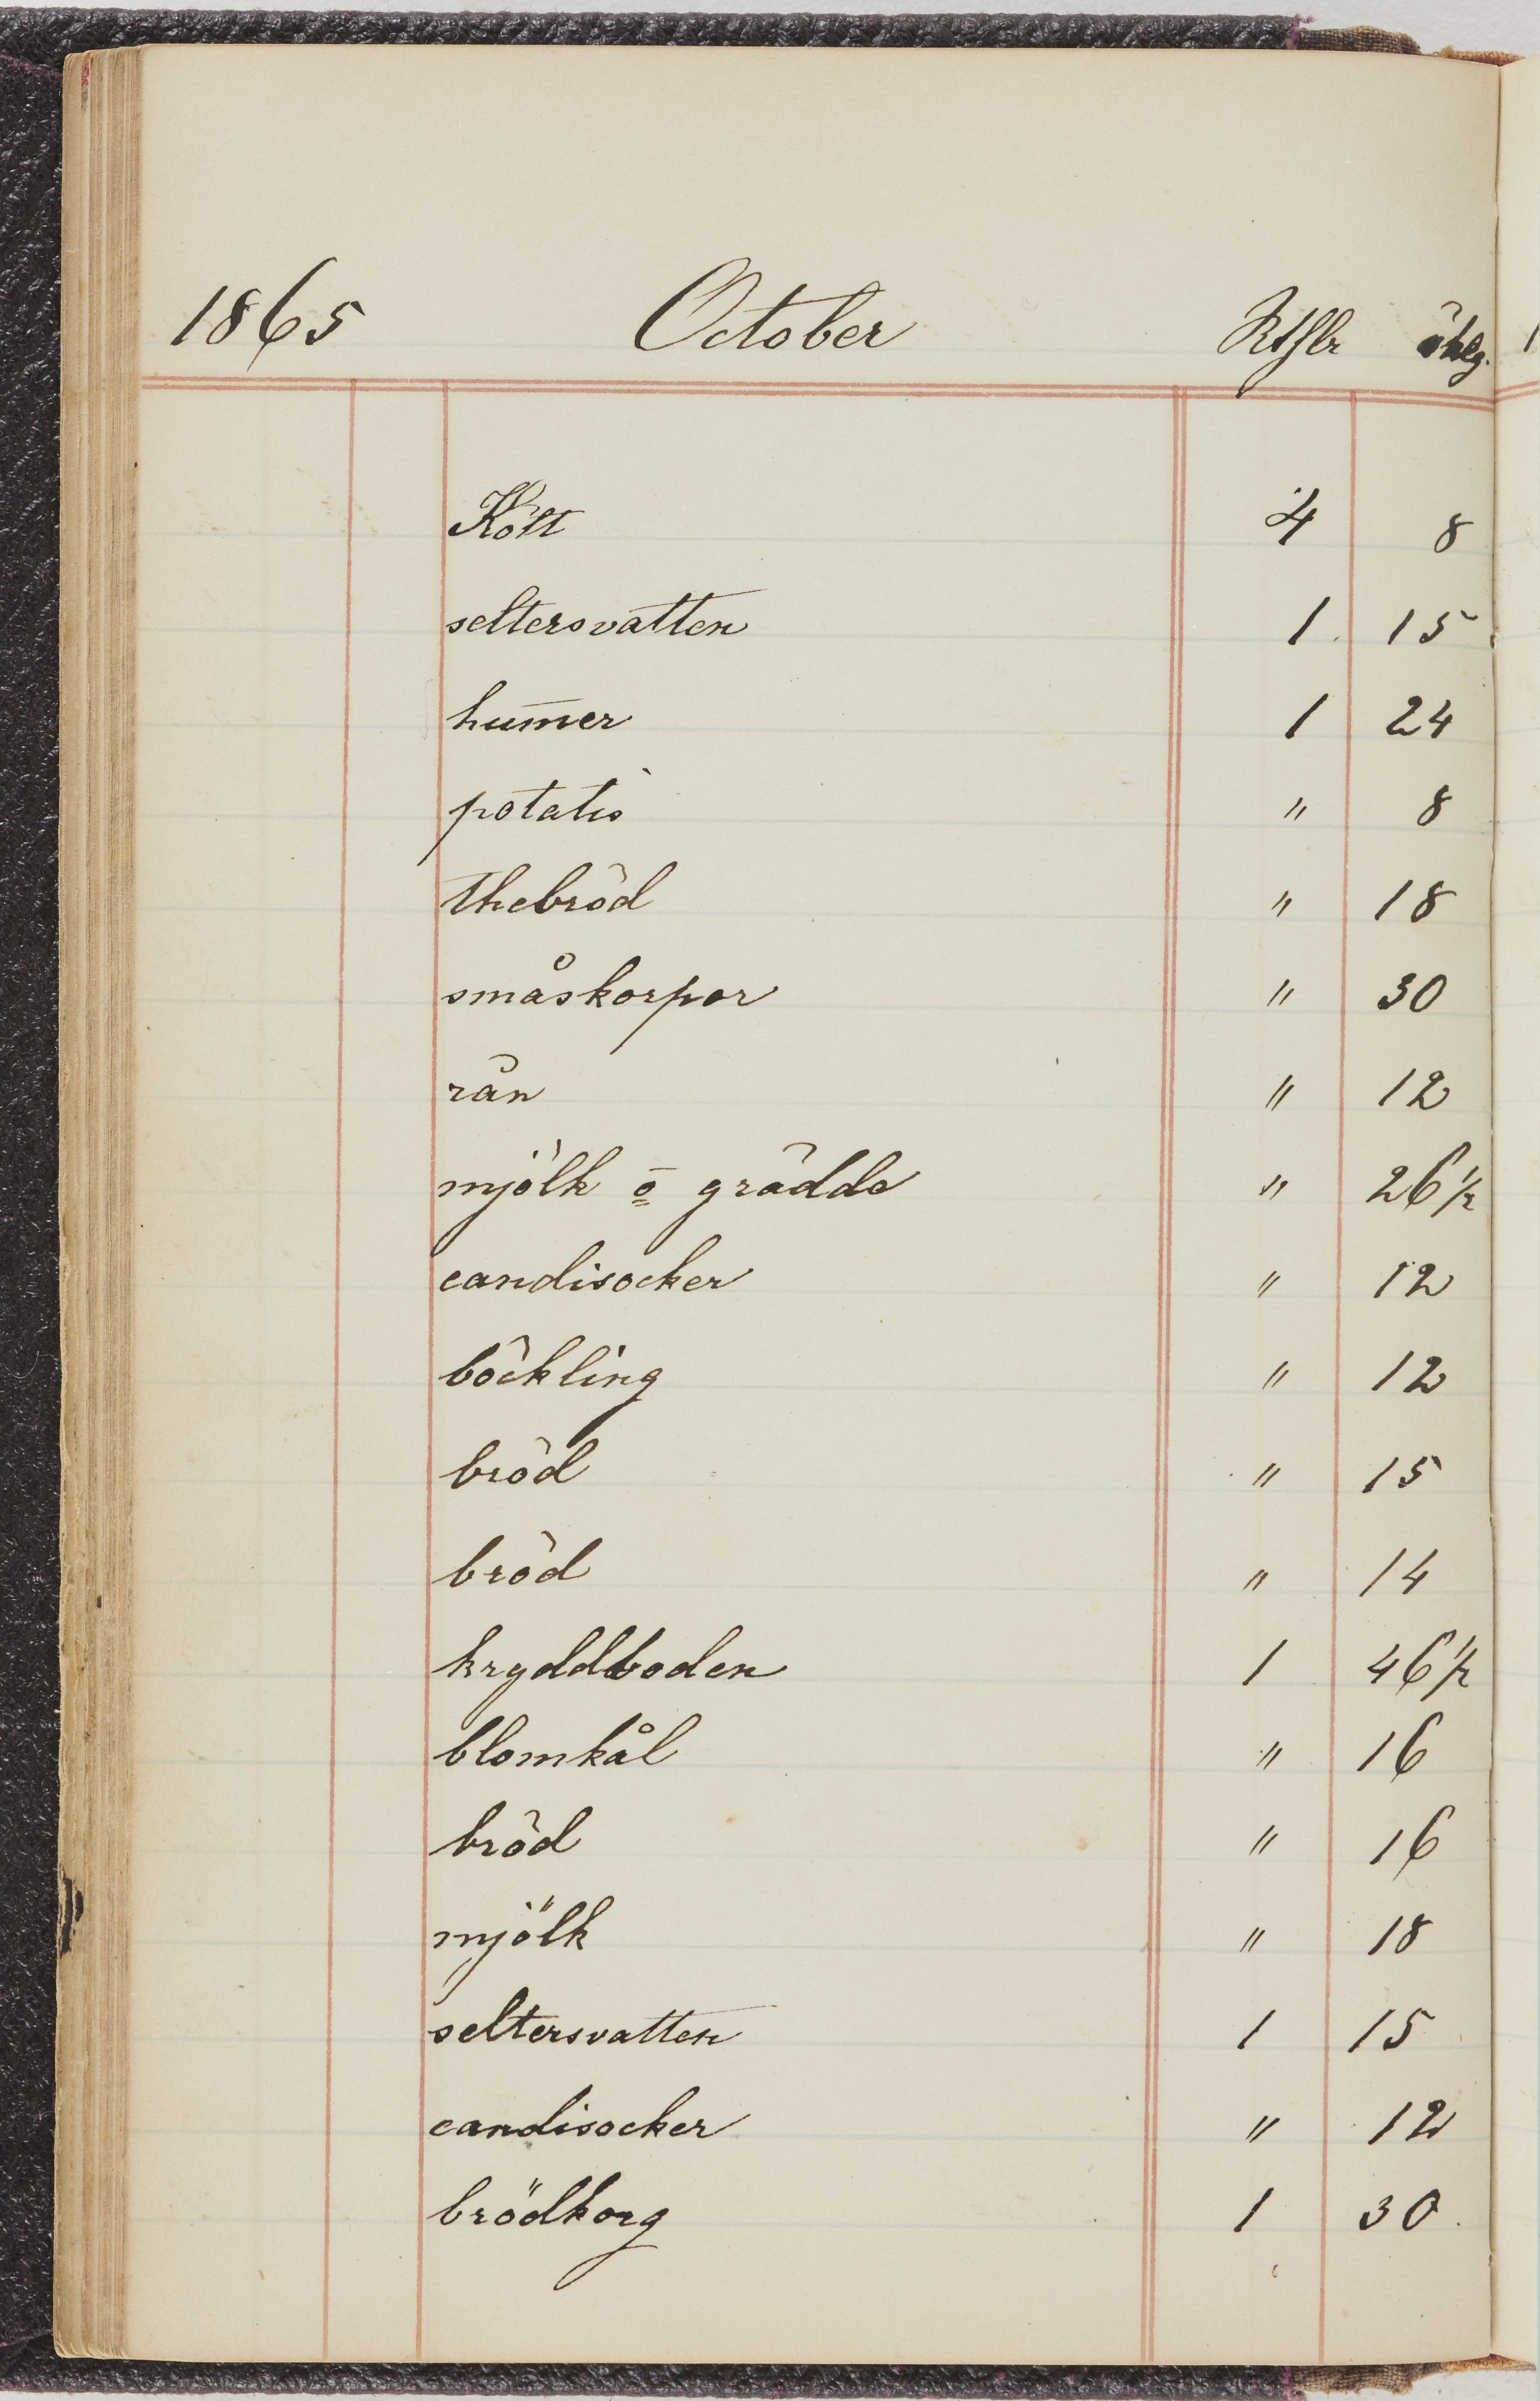 1865 October Rtslr
Kött 4 8
seltersvatten 1 15
hum̄er 1 24
potatis " 8
thebröd " 18
småskorpor " 30
rån " 12
mjölk o grädde " 26 1/2
candisocker " 12
böckling " 12
bröd " 15
bröd " 14
kryddboden 1 46 1/2
blomkål " 16
bröd " 16
mjölk " 18
seltersvatten 1 15
candisocker " 12
brödkorg 1 30